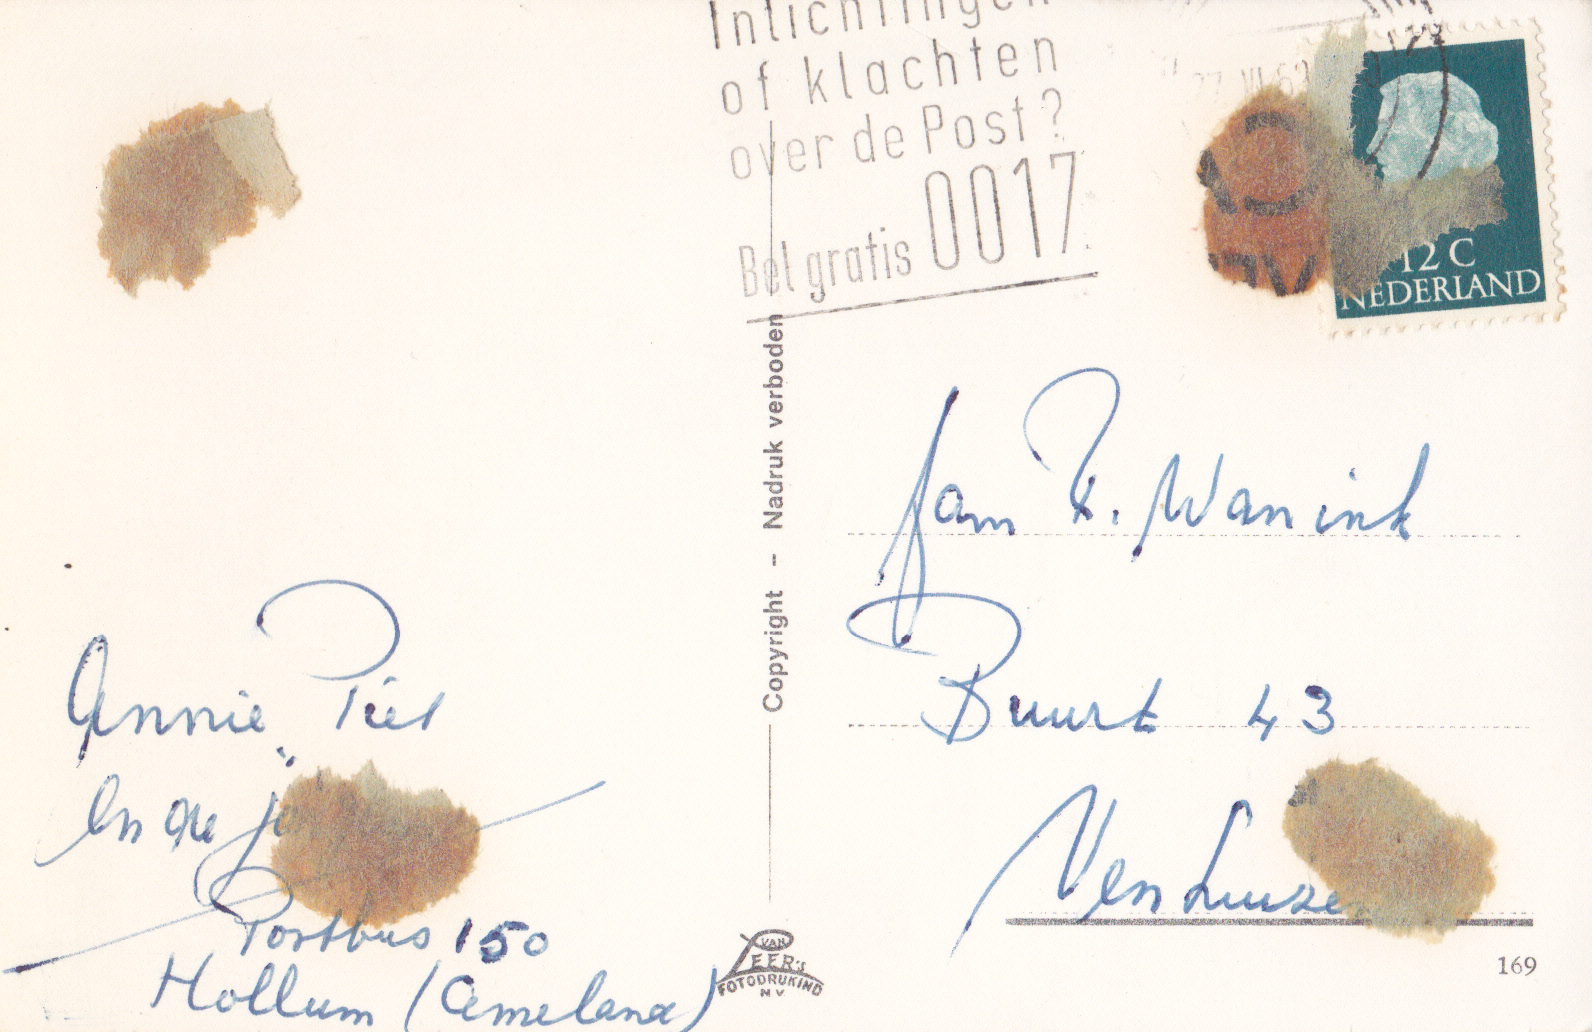 Inlichtingen
of klachten
over de Post?
Bel gratis 0017
12 C
NEDERLAND
Copyright - Nadruk verboden
Jan Wanink
Buurt 43
Annie Piet
en de
Postbus 150
Hollum (Ameland)
VAN
LEER'S
FOTODRUKIND
N V
169